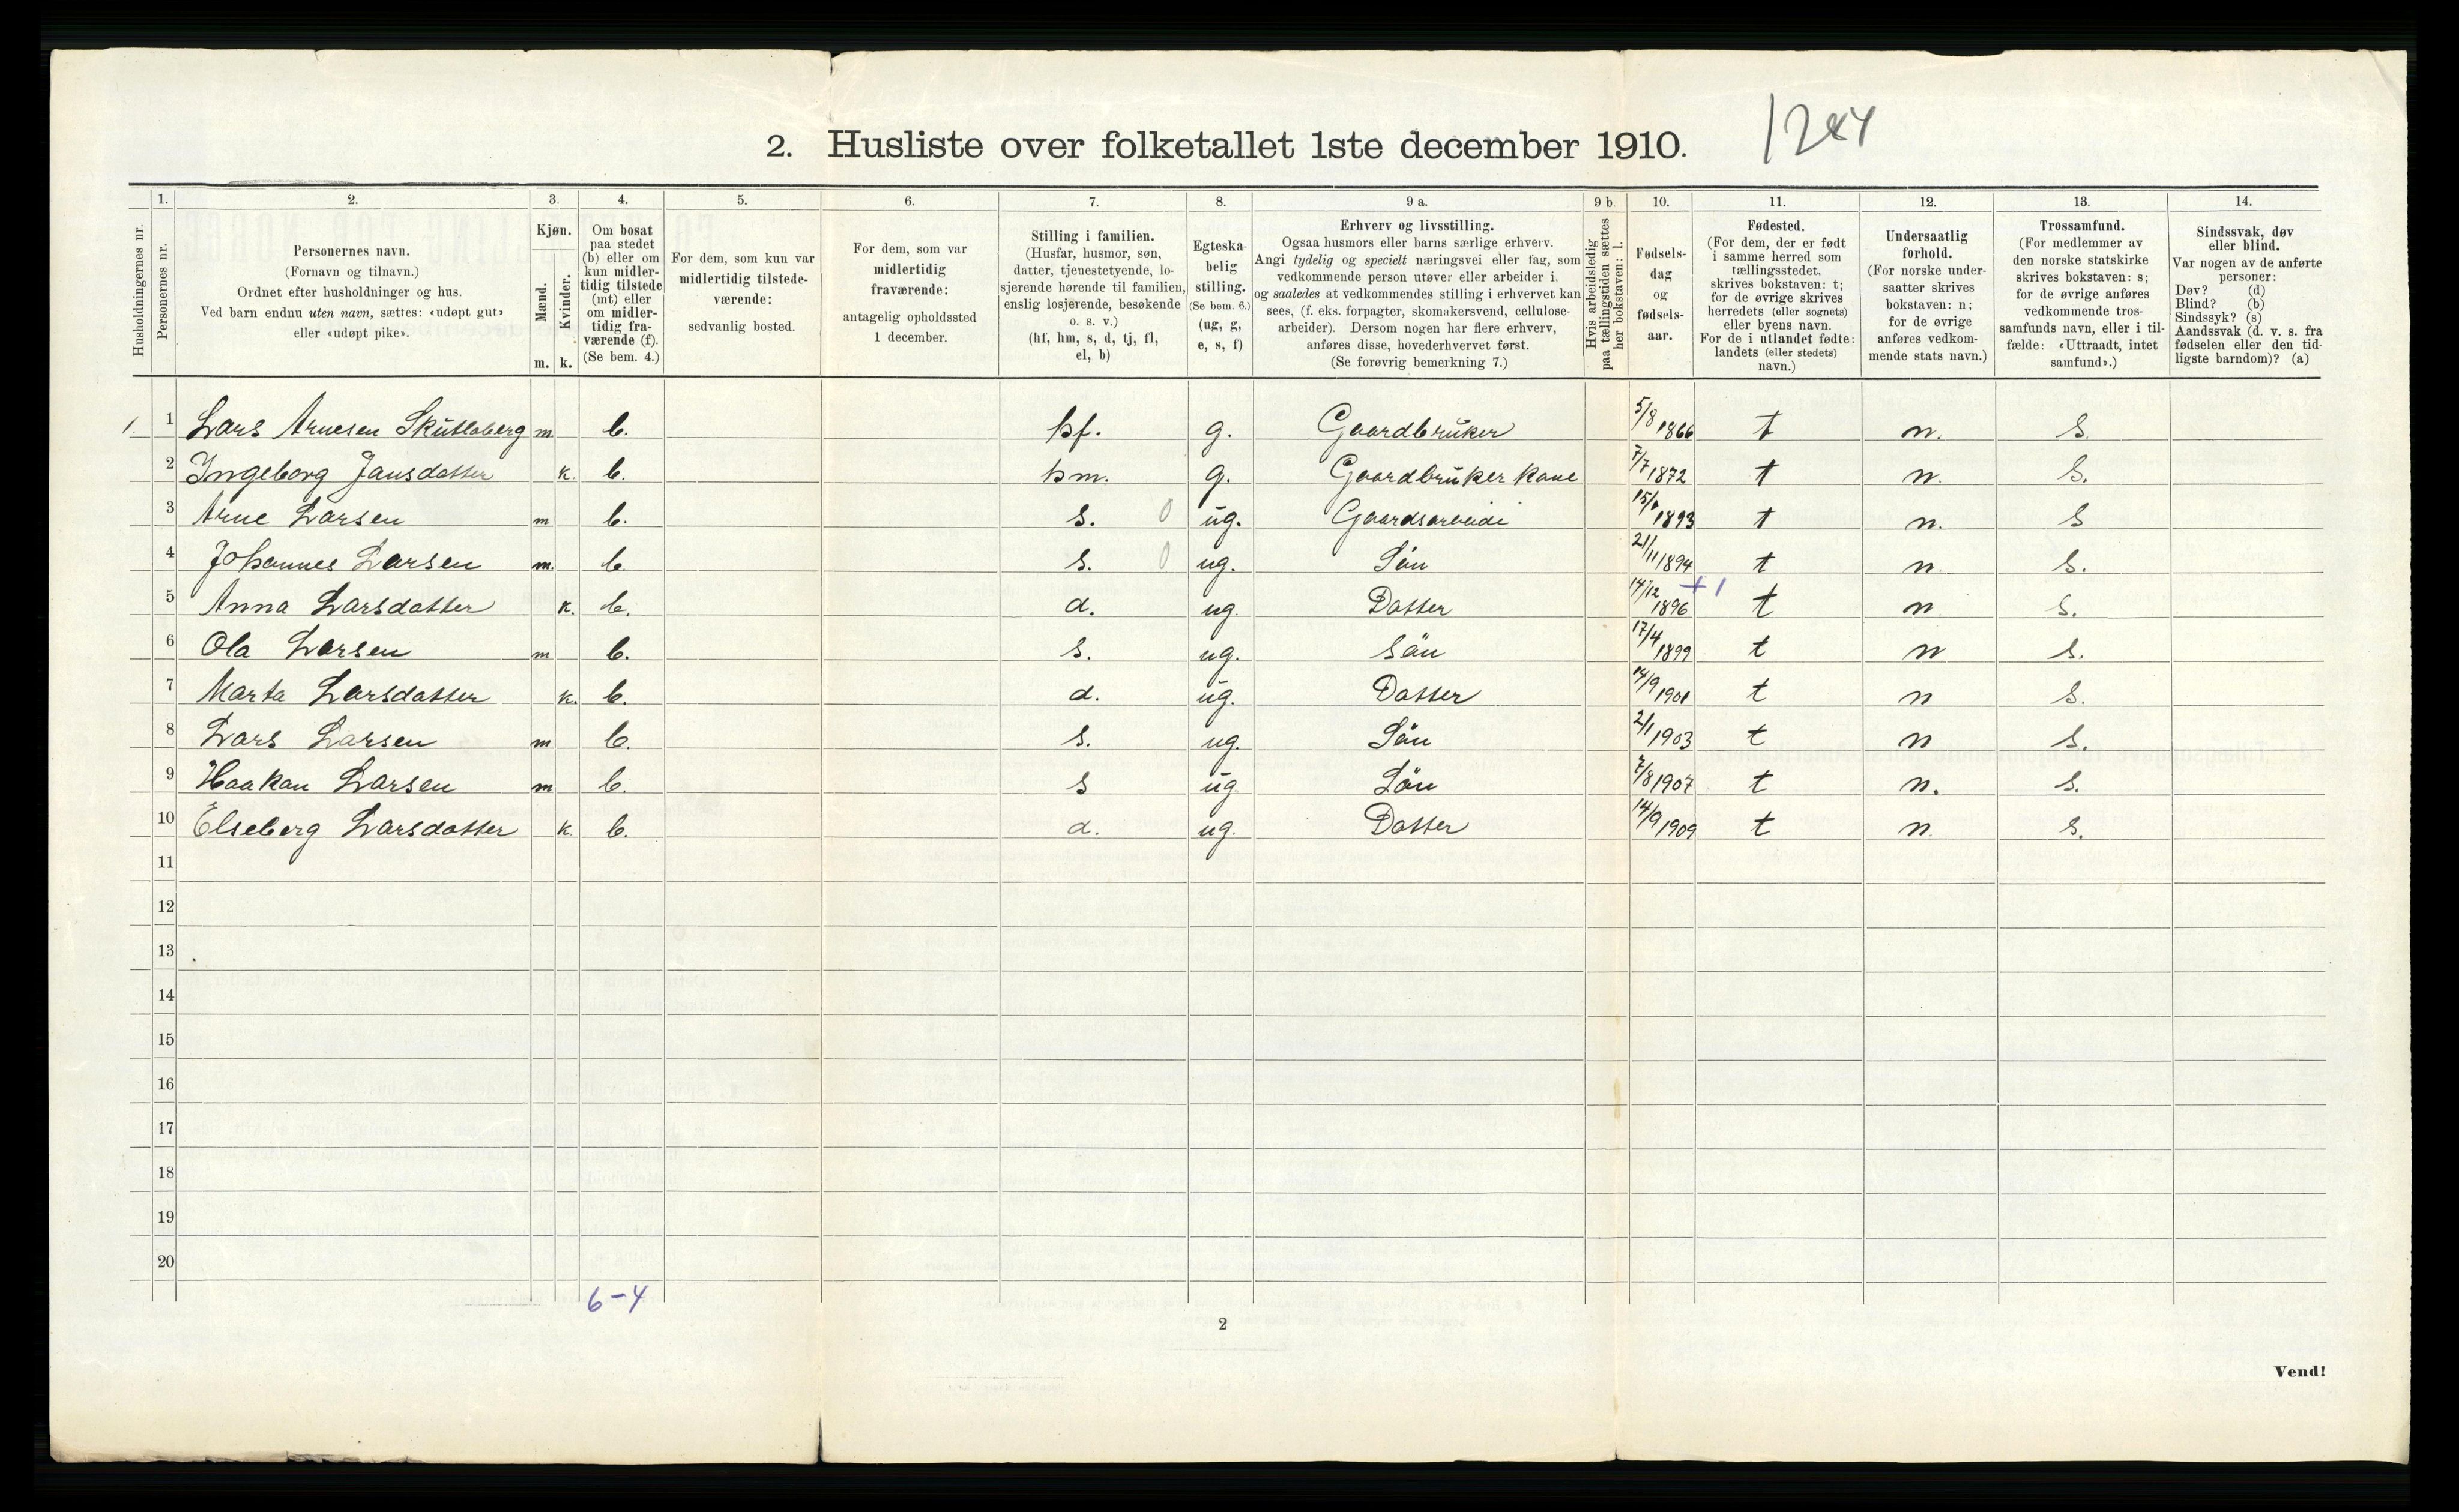 2. Husliste over folketallet 1ste december 1910.
1284
1. 2. 3. 4. 5. 6. 7. 8. 9 a. 9 b. 10. 11. 12. 13. 14.
Husholdningernes nr.
Personernes nr.
Personernes navn.
(Fornavn og tilnavn.)
Ordnet efter husholdninger og hus.
Ved barn endnu uten navn, sættes: «udøpt gut»
eller «udøpt pike».
Kjøn.
Mænd.
Kvinder.
m. k.
Om bosat
paa stedet
(b) eller om
kun midler-
tidig tilstede
(mt) eller
om midler-
tidig fra-
værende (f).
(Se bem. 4.)
For dem, som kun var
midlertidig tilstede-
værende:
sedvanlig bosted.
For dem, som var
midlertidig
fraværende:
antagelig opholdssted
1 december.
Stilling i familien.
(Husfar, husmor, søn,
datter, tjenestetyende, lo-
sjerende hørende til familien,
enslig losjerende, besøkende
o. s. v.)
(hf, hm, s, d, tj, fl,
el, b)
Egteska-
belig
stilling.
(Se bem. 6.)
(ug, g,
e, s, f)
Erhverv og livsstilling.
Ogsaa husmors eller barns særlige erhverv.
Angi tydelig og specielt næringsvei eller fag, som
vedkommende person utøver eller arbeider i,
og saaledes at vedkommendes stilling i erhvervet kan
sees, (f. eks. forpagter, skomakersvend, cellulose-
arbeider). Dersom nogen har flere erhverv,
anføres disse, hovederhvervet først.
(Se forøvrig bemerkning 7.)
Hvis arbeidsledig
paa tællingstiden sættes
her bokstaven: l.
Fødsels-
dag
og
fødsels-
aar.
Fødested.
(For dem, der er født
i samme herred som
tællingsstedet,
skrives bokstaven: t;
for de øvrige skrives
herredets (eller sognets)
eller byens navn.
For de i utlandet fødte:
landets (eller stedets)
navn.)
Undersaatlig
forhold.
(For norske under-
saatter skrives
bokstaven: n;
for de øvrige
anføres vedkom-
mende stats navn.)
Trossamfund.
(For medlemmer av
den norske statskirke
skrives bokstaven: s;
for de øvrige anføres
vedkommende tros-
samfunds navn, eller i til-
fælde: «Uttraadt, intet
samfund».)
Sindssvak, døv
eller blind.
Var nogen av de anførte
personer:
Døv? (d)
Blind? (b)
Sindssyk? (s)
Aandssvak (d. v. s. fra
fødselen eller den tid-
ligste barndom)? (a)
1. 1 Lars Arnesen Skutlaberg m b. hf. g. Gaardbruker 5/8 1866 t n. s.
2 Ingeborg Jansdatter k. b. hm. g. Gaardbruker kone 7/7 1872 t n. s.
3 Arne Larsen m b. s. 0 ug. Gaardsarbeide 1893 t n. s
4 Johannes Larsen m. b. s. 0 ug. Sön 21/11 1894 t n s.
5 Anna Larsdatter k. b. d. ug. Datter 14/12 1896 +1 t n s.
6 Ola Larsen m b. s. ug. Sön 17/4 1899 t n s.
7 Marta Larsdatter k. b. d. ug. Datter 14/9 1901 t n s.
8 Lars Larsen m b. s. ug. Sön 2/1 1903 t n s.
9 Haakan Larsen m b. s ug Sön 7/8 1907 t n. s.
10 Elseberg Larsdatter k. b. d. ug. Datter 14/9 1909 t n. s.
11
12
13
14
15
16
17
18
19
20
6-4
2
Vend!